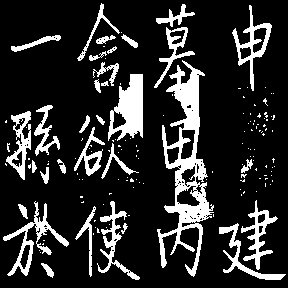 申建
墓田丙
舍欲使
一孫於